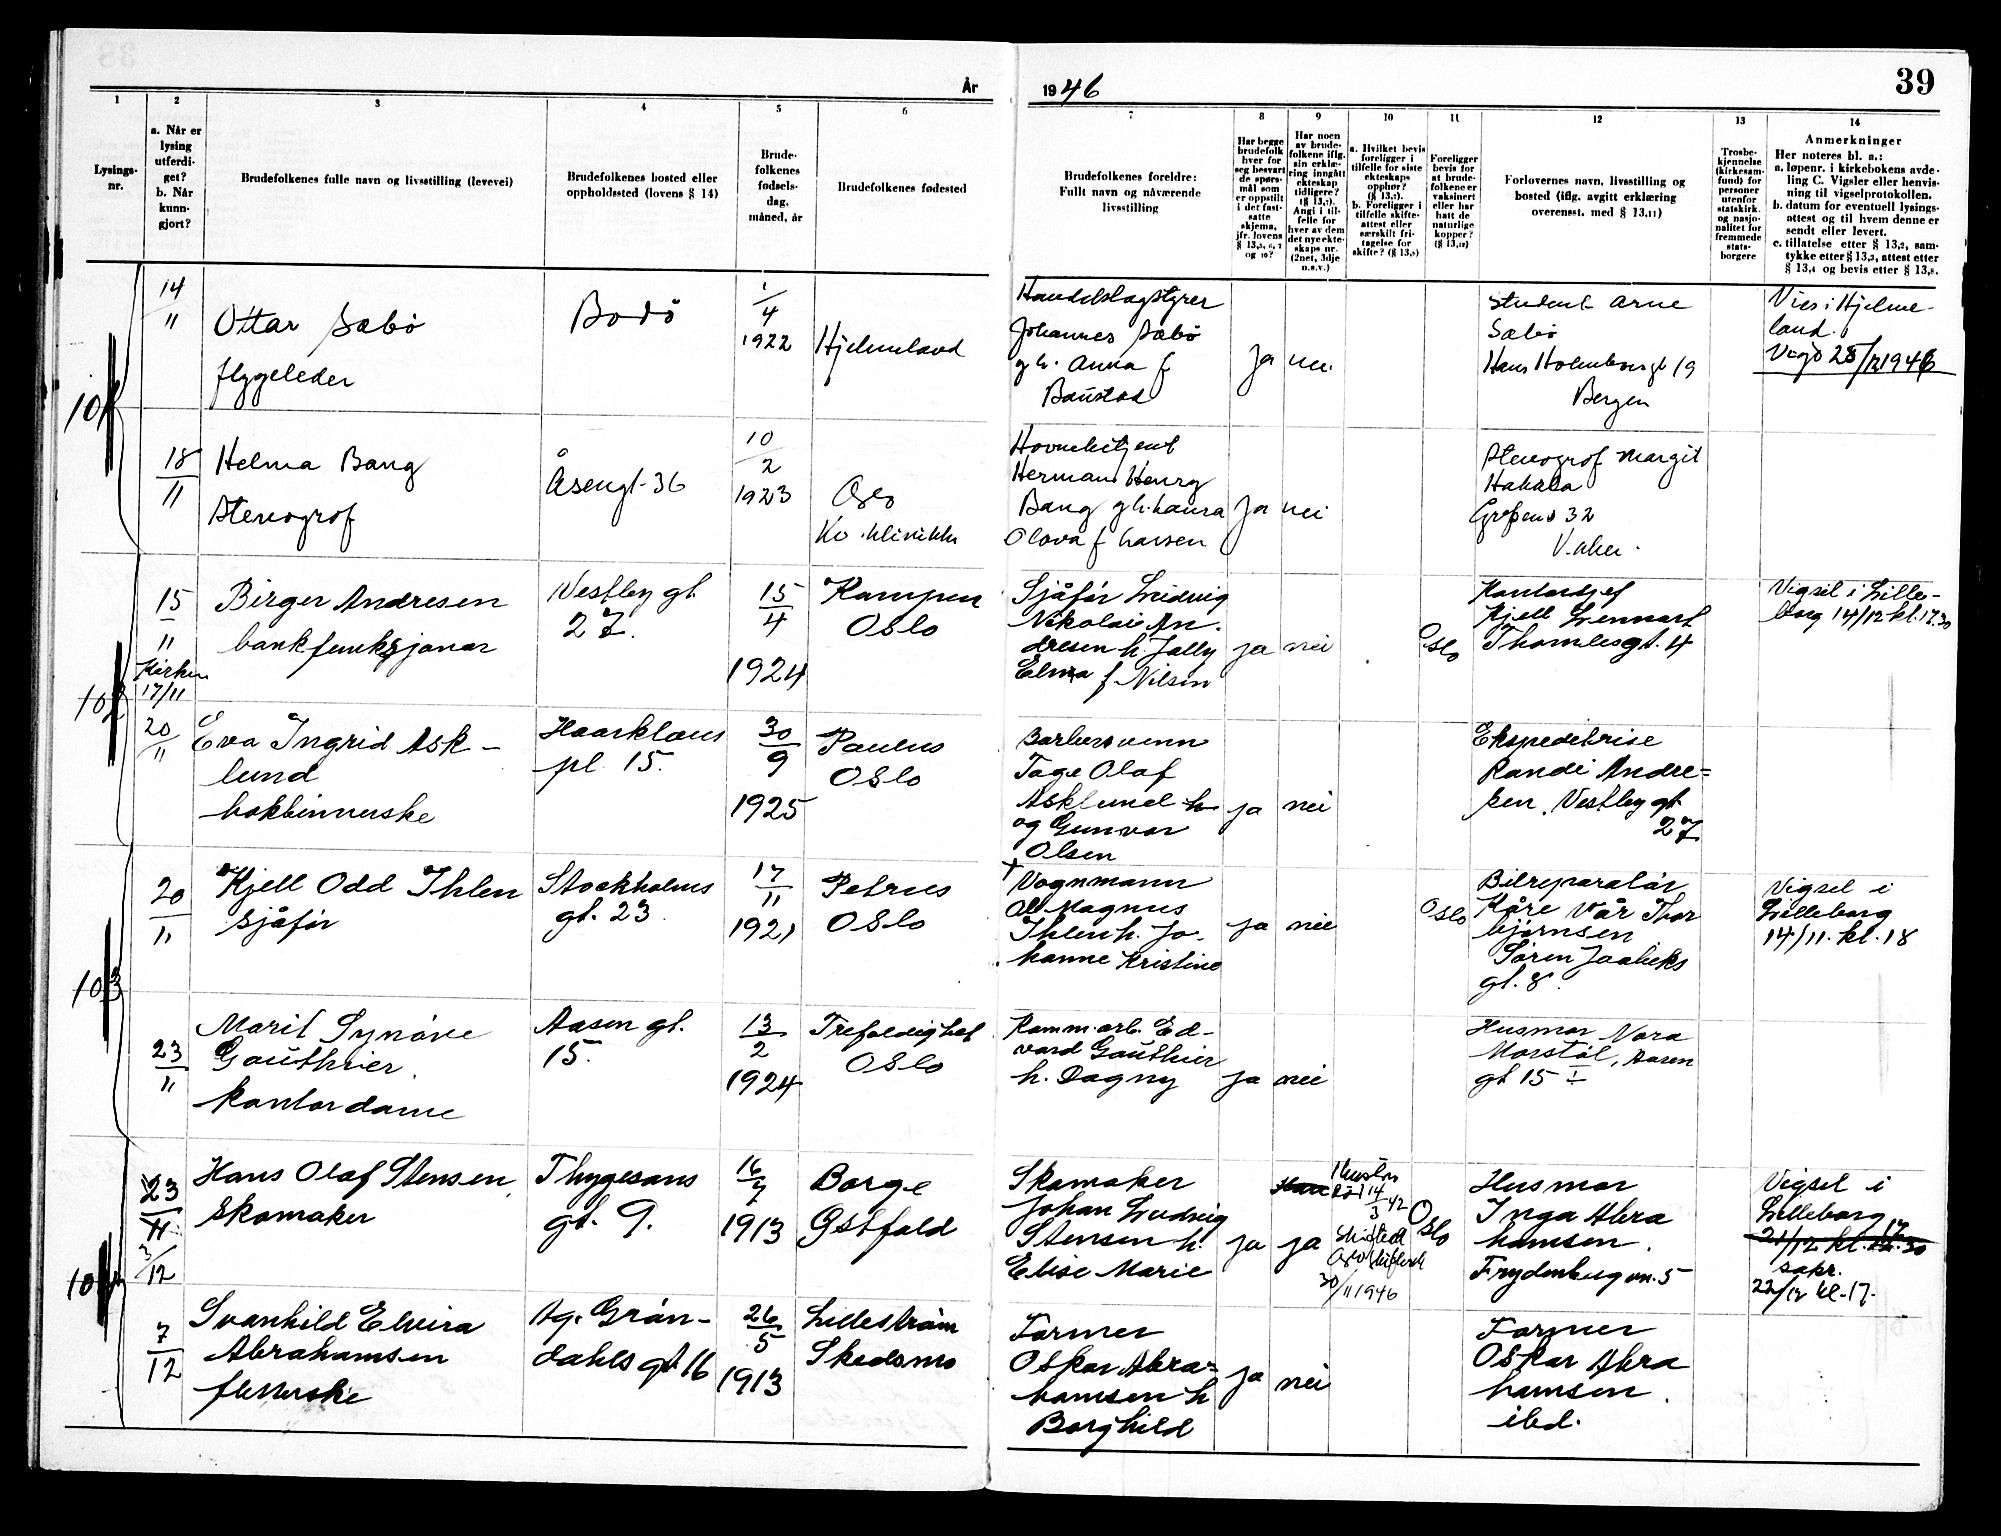 År
1946
39
1
2
3
4
5
6
7
8
9
10
11
12
13
14
Lysings-
nr.
a. Når er
lysing
utferdi-
get?
b. Når
kunn-
gjort?
Brudefolkenes fulle navn og livsstilling (levevei)
Brudefolkenes bosted eller
oppholdssted (lovens § 14)
Brude-
folkenes
fødsels-
dag,
måned, år
Brudefolkenes fødested
Brudefolkenes foreldre:
Fullt navn og nåværende
livsstilling
Har begge
brudefolk
hver for
seg besvart
de spørs-
mål som
er oppstilt
i det fast-
satte
skjema,
jfr. lovens
§ 13,5, 6, 7
og 10?
Har noen
av brude-
folkene iflg.
sin erklæ-
ring inngått
ekteskap
tidligere?
(§ 13,7).
Angi i til-
felle for
hver av dem
det nye ekte-
skaps nr.
(2net, 3dje
o.s.v.)
a. Hvilket bevis
foreligger i
tilfelle for siste
ekteskaps
opphør?
(§ 13,7).
b. Foreligger i
tilfelle skifte-
attest eller
særskilt fri-
tagelse for
skifte? (§ 13,9)
Foreligger
bevis for
at brude-
folkene er
vaksinert
eller har
hatt de
naturlige
kopper?
(§ 13,12)
Forlovernes navn, livsstilling og
bosted (iflg. avgitt erklæring
overensst. med § 13,11)
Trosbe-
kjennelse
(kirkesam-
fund) for
personer
utenfor
statskirk.
og nasjo-
nalitet for
fremmede
stats-
borgere
Anmerkninger
Her noteres bl. a.:
a. løpenr. i kirkebokens avde-
ling C. Vigsler eller henvis-
ning til vigselprotokollen.
b. datum for eventuell lysings-
attest og til hvem denne er
sendt eller levert.
c. tillatelse etter § 13,2, sam-
tykke etter § 13,3, attest etter
§ 13,4 og bevis etter § 13,8.
101
14/11
Ottar Sæbö
flygeleder
Bodö
1/4
1922
Hjelmeland
Handelslagstyrer
Johannes Sæbö
g h. Anna f
Baustad
Ja
nei
Student Arne
Sæbö
Hans Holmboesgt 19
Bergen
Vies i Hjelme-
land.
Vigd 28/12 1946
18/11
Helma Bang
Stenograf
Åsengt-36
10/2
1923
Oslo
Kv.klinikk
Hovmebetjent
Herman Henry
Bang g h. Laura
Olava f Larsen
Ja
nei
Stenograf Margit
Hakala
32
V. Aker.
102
15/11
Kirken
17/11
Birger Andresen
bankfunksjonær
Vestby gt.
27.
15/4
1924
Kampen
Oslo
Sjåfør Ludvig
Nikolai An-
dresen h. Jally
Elma f Nilsen
ja
nei
Oslo
Kontorsjef
Kjell Lennart
Thomlesgt. 4
Vigsel i Lille-
borg 14/12 kl. 17.30
20/11
Eva Ingrid Ask-
lund
bokbinnerske
Haarklaus
pl. 15.
30/9
1925
Paulus
Oslo
Barbersvenn
Tage Olaf
Asklund h
og Gunvor
Olsen
ja
nei
Ekspeditrise
Randi Andre=
sen. Vestby gt
27
103
20/11
Kjell Odd Ihlen
sjåfør
Stockholms
gt. 23
17/11
1921
Petrus
Oslo
Vognmann
Magnus
Ihlen h. Jo-
hanne Kristine
ja
nei
Oslo
Bilreparatør
Kåre Vår Thor
bjørnsen
Søren Jaabeks
gt. 8.
Vigsel i
Lilleborg
14/11. kl. 18
23/11
Marit Synøve
Gauthier.
Kontordame
Aasen gt.
15.
13/2
1924
Trefoldighet
Oslo
Komm.arb. Ed-
vard Gauthier
h. Dagny
ja
nei
Husmor Nora
Morstøl, Aasen
gt 15 I
104
23/11
3/12
Hans Olaf Stensen,
Skomaker
Thygesons
gt. 9.
16/7
1913
Borge
Østfold
Skomaker
Johan Ludvig
Stensen h.
Elise Marie
ja
ja
Hustru
død 14/3 42
Skifteatt
Oslo skifterett
30/11 1946
Oslo
Husmor
Inga Abra
hamsen.
Frydenberg vn. 5
Vigsel i
Lilleborg
21/12 kl. 17.30
sakr.
22/12 kl. 17.
7/12
Svanhild Elvira
Abrahamsen
fletterske
Ag. Grøn-
dahls gt 16
26/5
1913
Lillestrøm
Skedsmo
Former
Oskar Abra=
hamsen h
Borghild
ja
nei
Former
Oskar Abra
hamsen.
ibd.